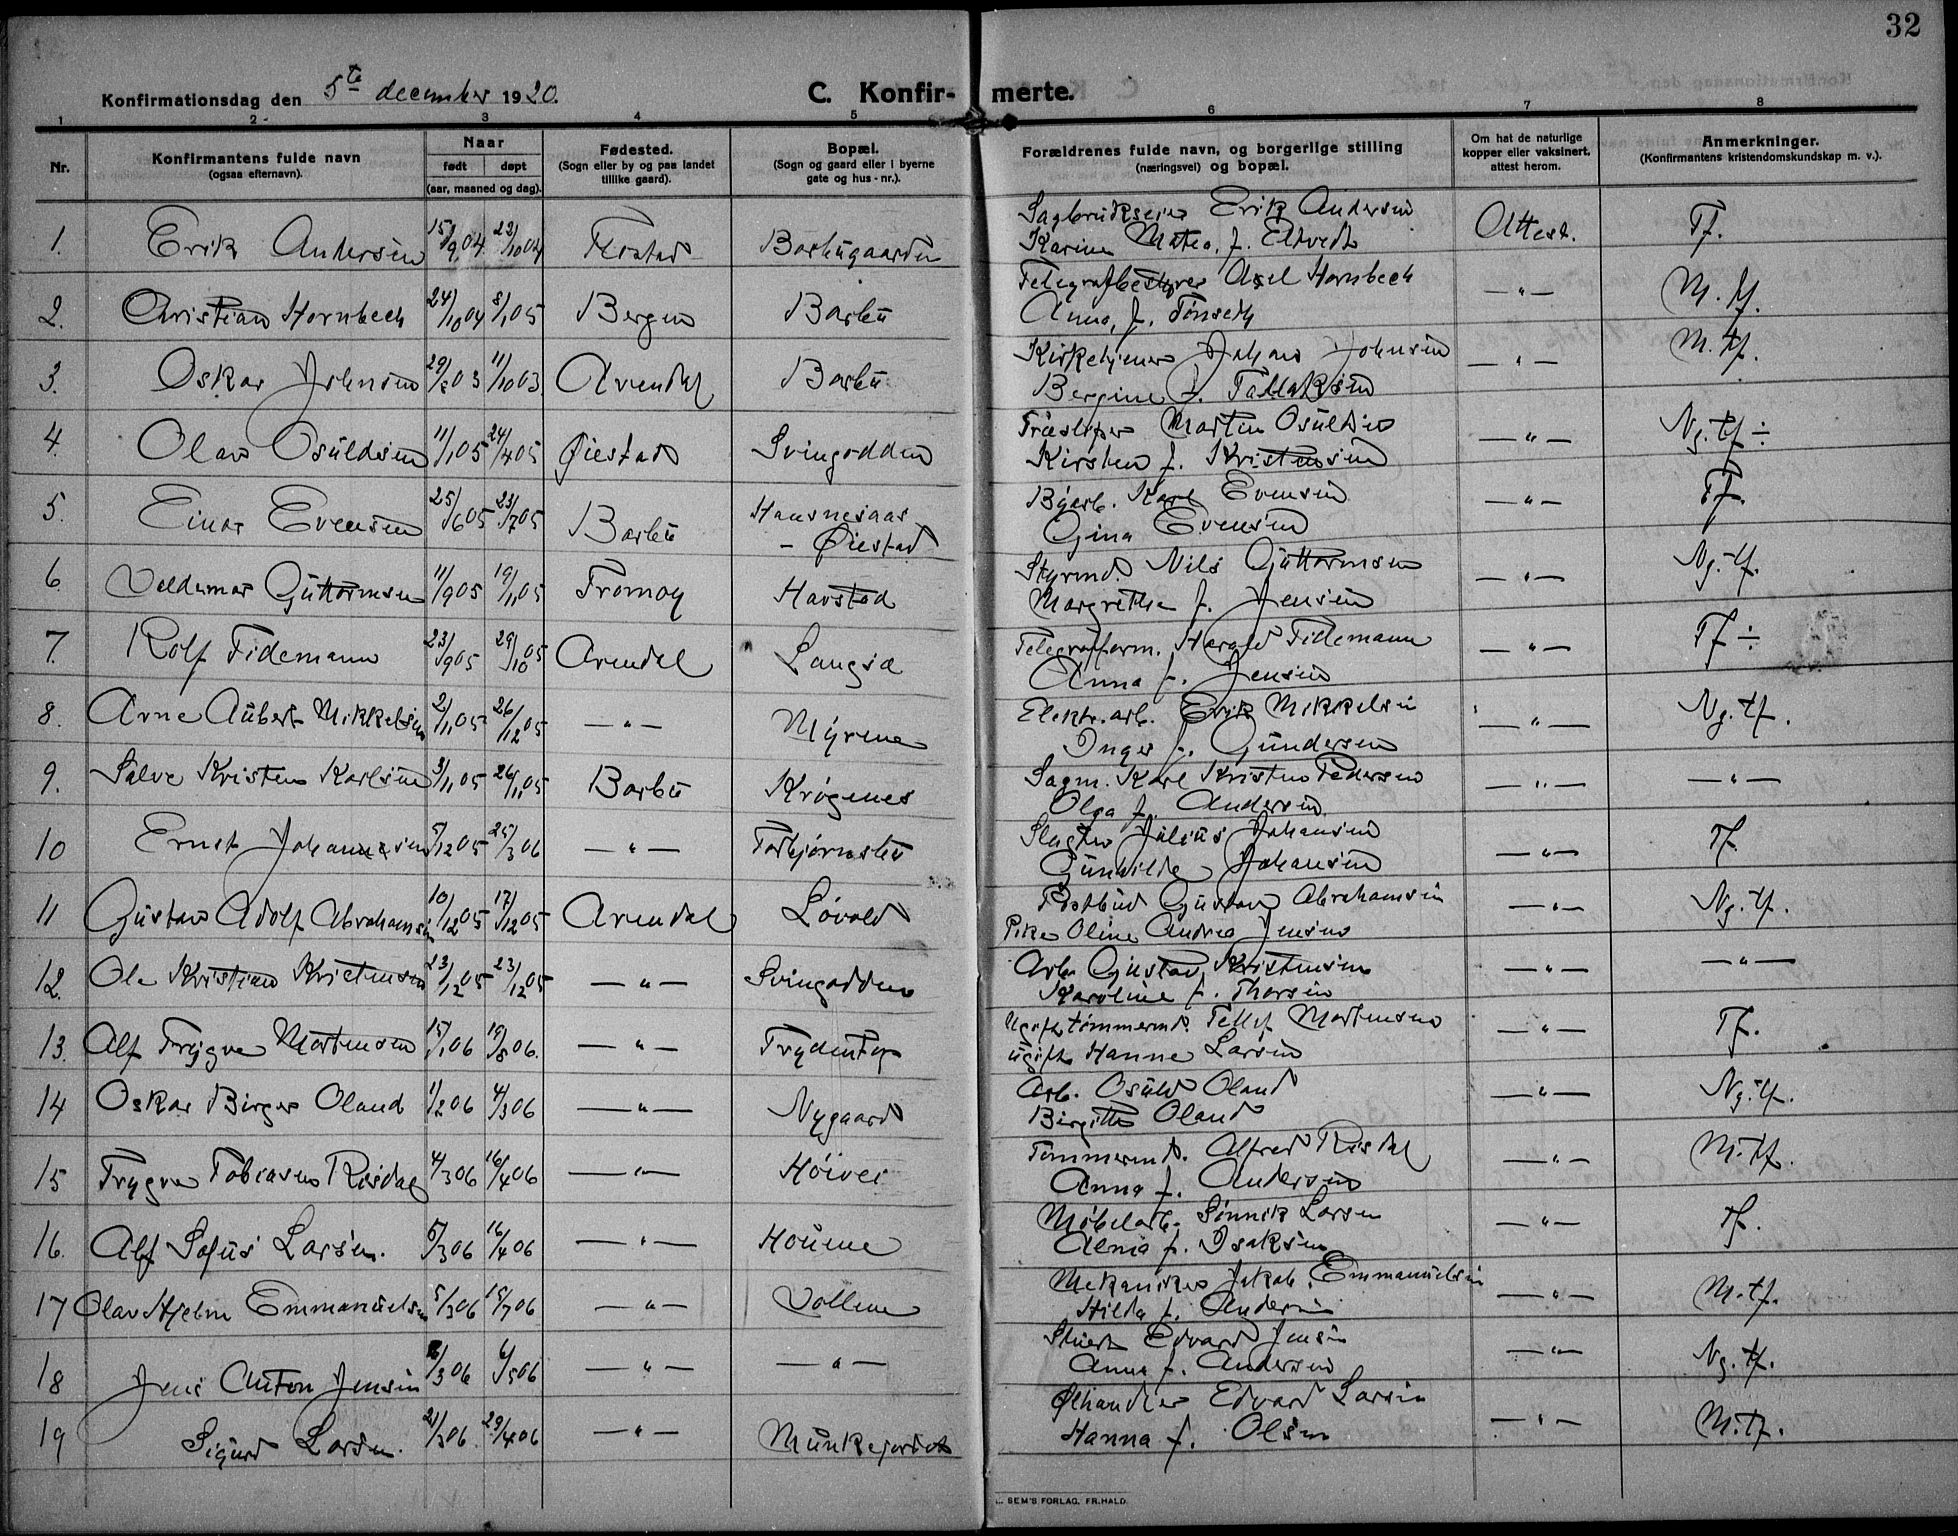 32
Konfirmationsdag den 5te december 1920. C. Konfir- merte.
1 2 3 4 5 6 7 8
Nr. Konfirmantens fulde navn (ogsaa efternavn). Naar født døpt (aar, maaned og dag). Fødested. (Sogn eller by og paa landet tillike gaard). Bopæl. (Sogn og gaard eller i byerne gate og hus-nr.). Forældrenes fulde navn, og borgerlige stilling (næringsvei) og bopæl. Om hat de naturlige kopper eller vaksinert, attest herom. Anmerkninger. (Konfirmantens kristendomskundskap m. v.).
1. Erik Andersen 15/9 04 23/10 04 Barbugaarden Sagbrukseier Erik Andersen Attest. Tf.
Karine Matea, f.
2. Christian Hornbech 24/10 04 8/1 05 Bergen Barbu Telegrafbestyrer Axel Hornbech —"— M. tf.
Anna, f. Tønseth
3. Oskar Johnsen 29/8 03 11/10 03 Arendal Barbu Kirketjener Johan Johnsen —"— M. tf.
Bergine f. Tallaksen
4. Olav Osuldsen 11/1 05 24/4 05 Øiestad Svinodden Morten Osuldsen —"— Ng. tf ÷
Kirsten f. Kristensen
5. Einar Evensen 25/6 05 23/7 05 Barbu Byarb. Karl Evensen —"— Tf.
- Øiestad Gina Evensen
6. Valdemar Guttormsen 11/9 05 19/11 05 Tromøy Havstad Styrmd. Nils Guttormsen —"— Ng. tf.
Margrethe f. Jensen
7. Rolf Tidemann 23/9 05 29/10 05 Arendal Langsæ Telegrafform. Harald Tidemann —"— Tf ÷
Anna f. Jensen
8. Arne Aubert Mikkelsen 2/11 05 26/12 05 —"— Myrene Elektr. arb. Erik Mikkelsen —"— Ng. tf.
Inger f. Gundersen
9. Salve Kristen Karlsen 3/11 05 26/11 05 Barbu Krøgenes Sagm. Karl Kristen Pedersen —"— —"—
Olga f. Andersen
10 Ernst Johannesen 5/12 05 25/3 06 —"— Torbjørnsbu Slagter Julius Johansen —"— Tf.
Gunhilde Johansen
11 Gustav Adolf Abrahamsen 10/12 05 17/12 05 Arendal Løvold Postbud Gustav Abrahamsen —"— Ng. tf.
Pike Oline Andrea Jensen
12. Ole Kristian Kristensen 23/12 05 23/12 05 —"— Svinodden Arb. Gustav Kristensen —"— —"—
Karoline f. Thorsen
13. Alf Trygve Mortensen 15/1 06 19/8 06. —"— Ugift tømmermd. Tellef Mortensen —"— Tf.
ugift Hanne Larsen
14 Oskar Birger Oland 1/2 06 4/3 06 —"— Nygaard Arb. Osuld Oland —"— Ng. tf.
Birgitte Oland
15 Trygve Tobiasen Risdal 4/3 06 16/4 06 —"— Høivei Tømmermd. Alfred Risdal —"— M. tf.
Anna f. Andersen
16. Alf Sofus Larsen. 5/3 06 16/4 06 —"— Houene Møbelarb. Sønnik Larsen —"— Tf.
f. Isaksen
17 Olav Hjelm Emmanuelsen 5/3 06 15/7 06 —"— Vollene Mekaniker Jakob Emmanuelsen —"— M. tf.
Hilda f. Andersen
18 Jens Anton Jensen 6/3 06 6/5 06 —"— —"— Stuert Edvard Jensen —"— Ng. tf.
Anna f. Andersen
19 Sigurd Larsen. 21/3 06 29/4 06 —"— Munkejordet Ølhandler Edvard Larsen —"— M. tf.
Hanna f. Olsen
SEM'S FORLAG. FR.HALD.